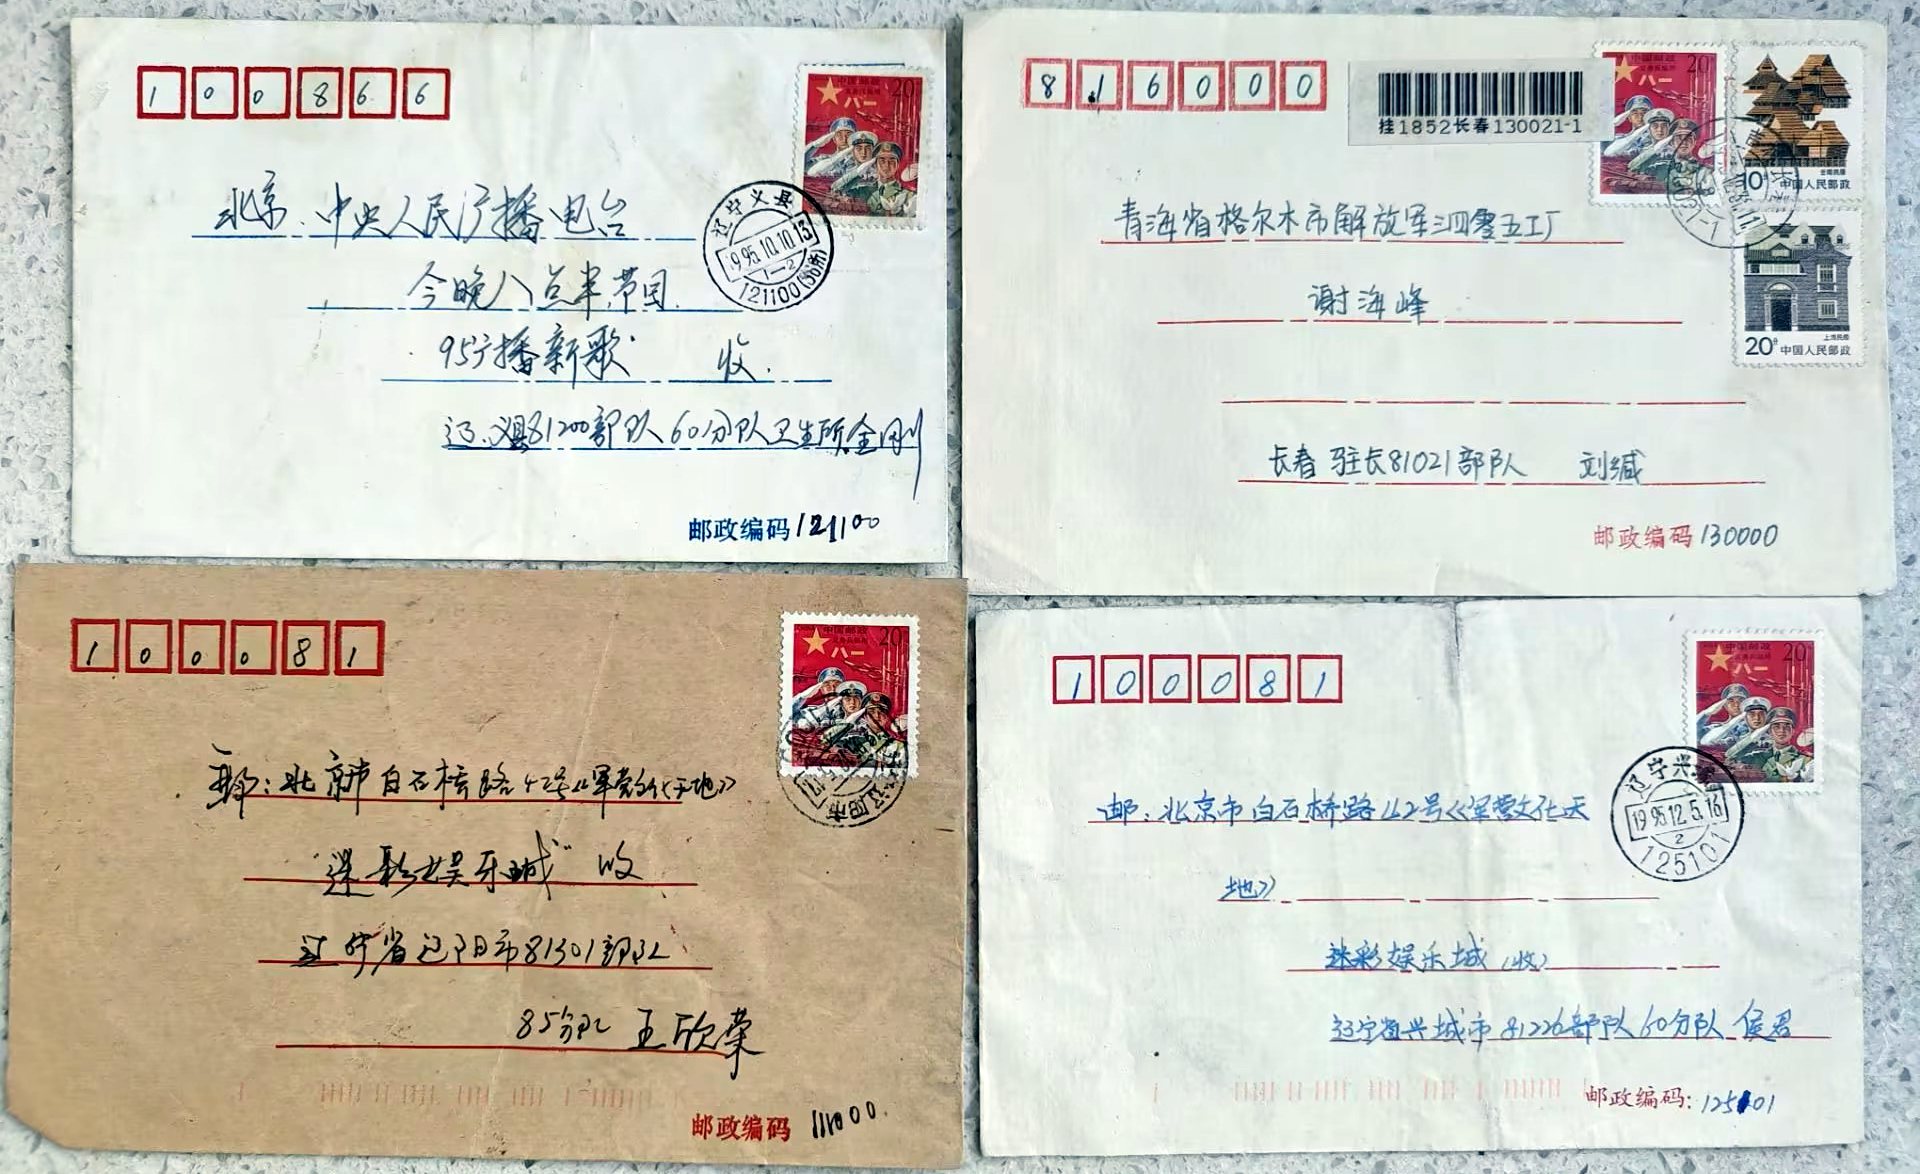 100866
中国邮政 20分
八一
北京.中央人民广播电台
今晚八点半节目.
95广播新歌 收.
辽.义县81200部队60分队卫生所金刚
邮政编码 121100
辽宁义县
1995.10.10.13
1-2
121100(邮所)
816000
挂1852长春130021-1
20
八一
10分 中国人民邮政
云南民居
上海民居
20分 中国人民邮政
青海省格尔木市解放军三四零五工厂
谢海峰
长春 驻长81021部队 刘缄
邮政编码 130000
100081
中国邮政 20
八一
邮:北京市白石桥路42号《军营文化天地》
"迷彩娱乐城" 收
辽宁省辽阳市81301部队
85分队 王欣荣
邮政编码 111000.
100081
中国邮政 20
八一
邮:北京市白石桥路42号《军营文化天
地》
迷彩娱乐城(收)
辽宁省兴城市81226部队60分队 侯君
邮政编码: 125101
辽宁兴
1995.12.5.16
2
125101